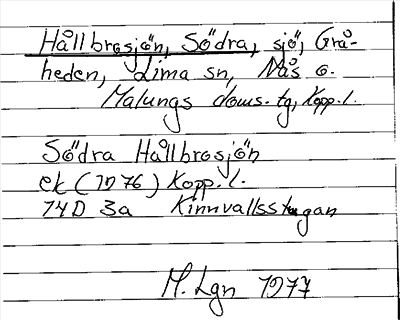 Hållbrosjön, Södra, sjö, Grå-
heden, Lima sn, Nås o.
Malungs doms. tg, Kopp. l.
Södra Hållbrosjön
ek (1976) Kopp. l.
14D 3a Kinnvallsstugan
M. Lgn 1977